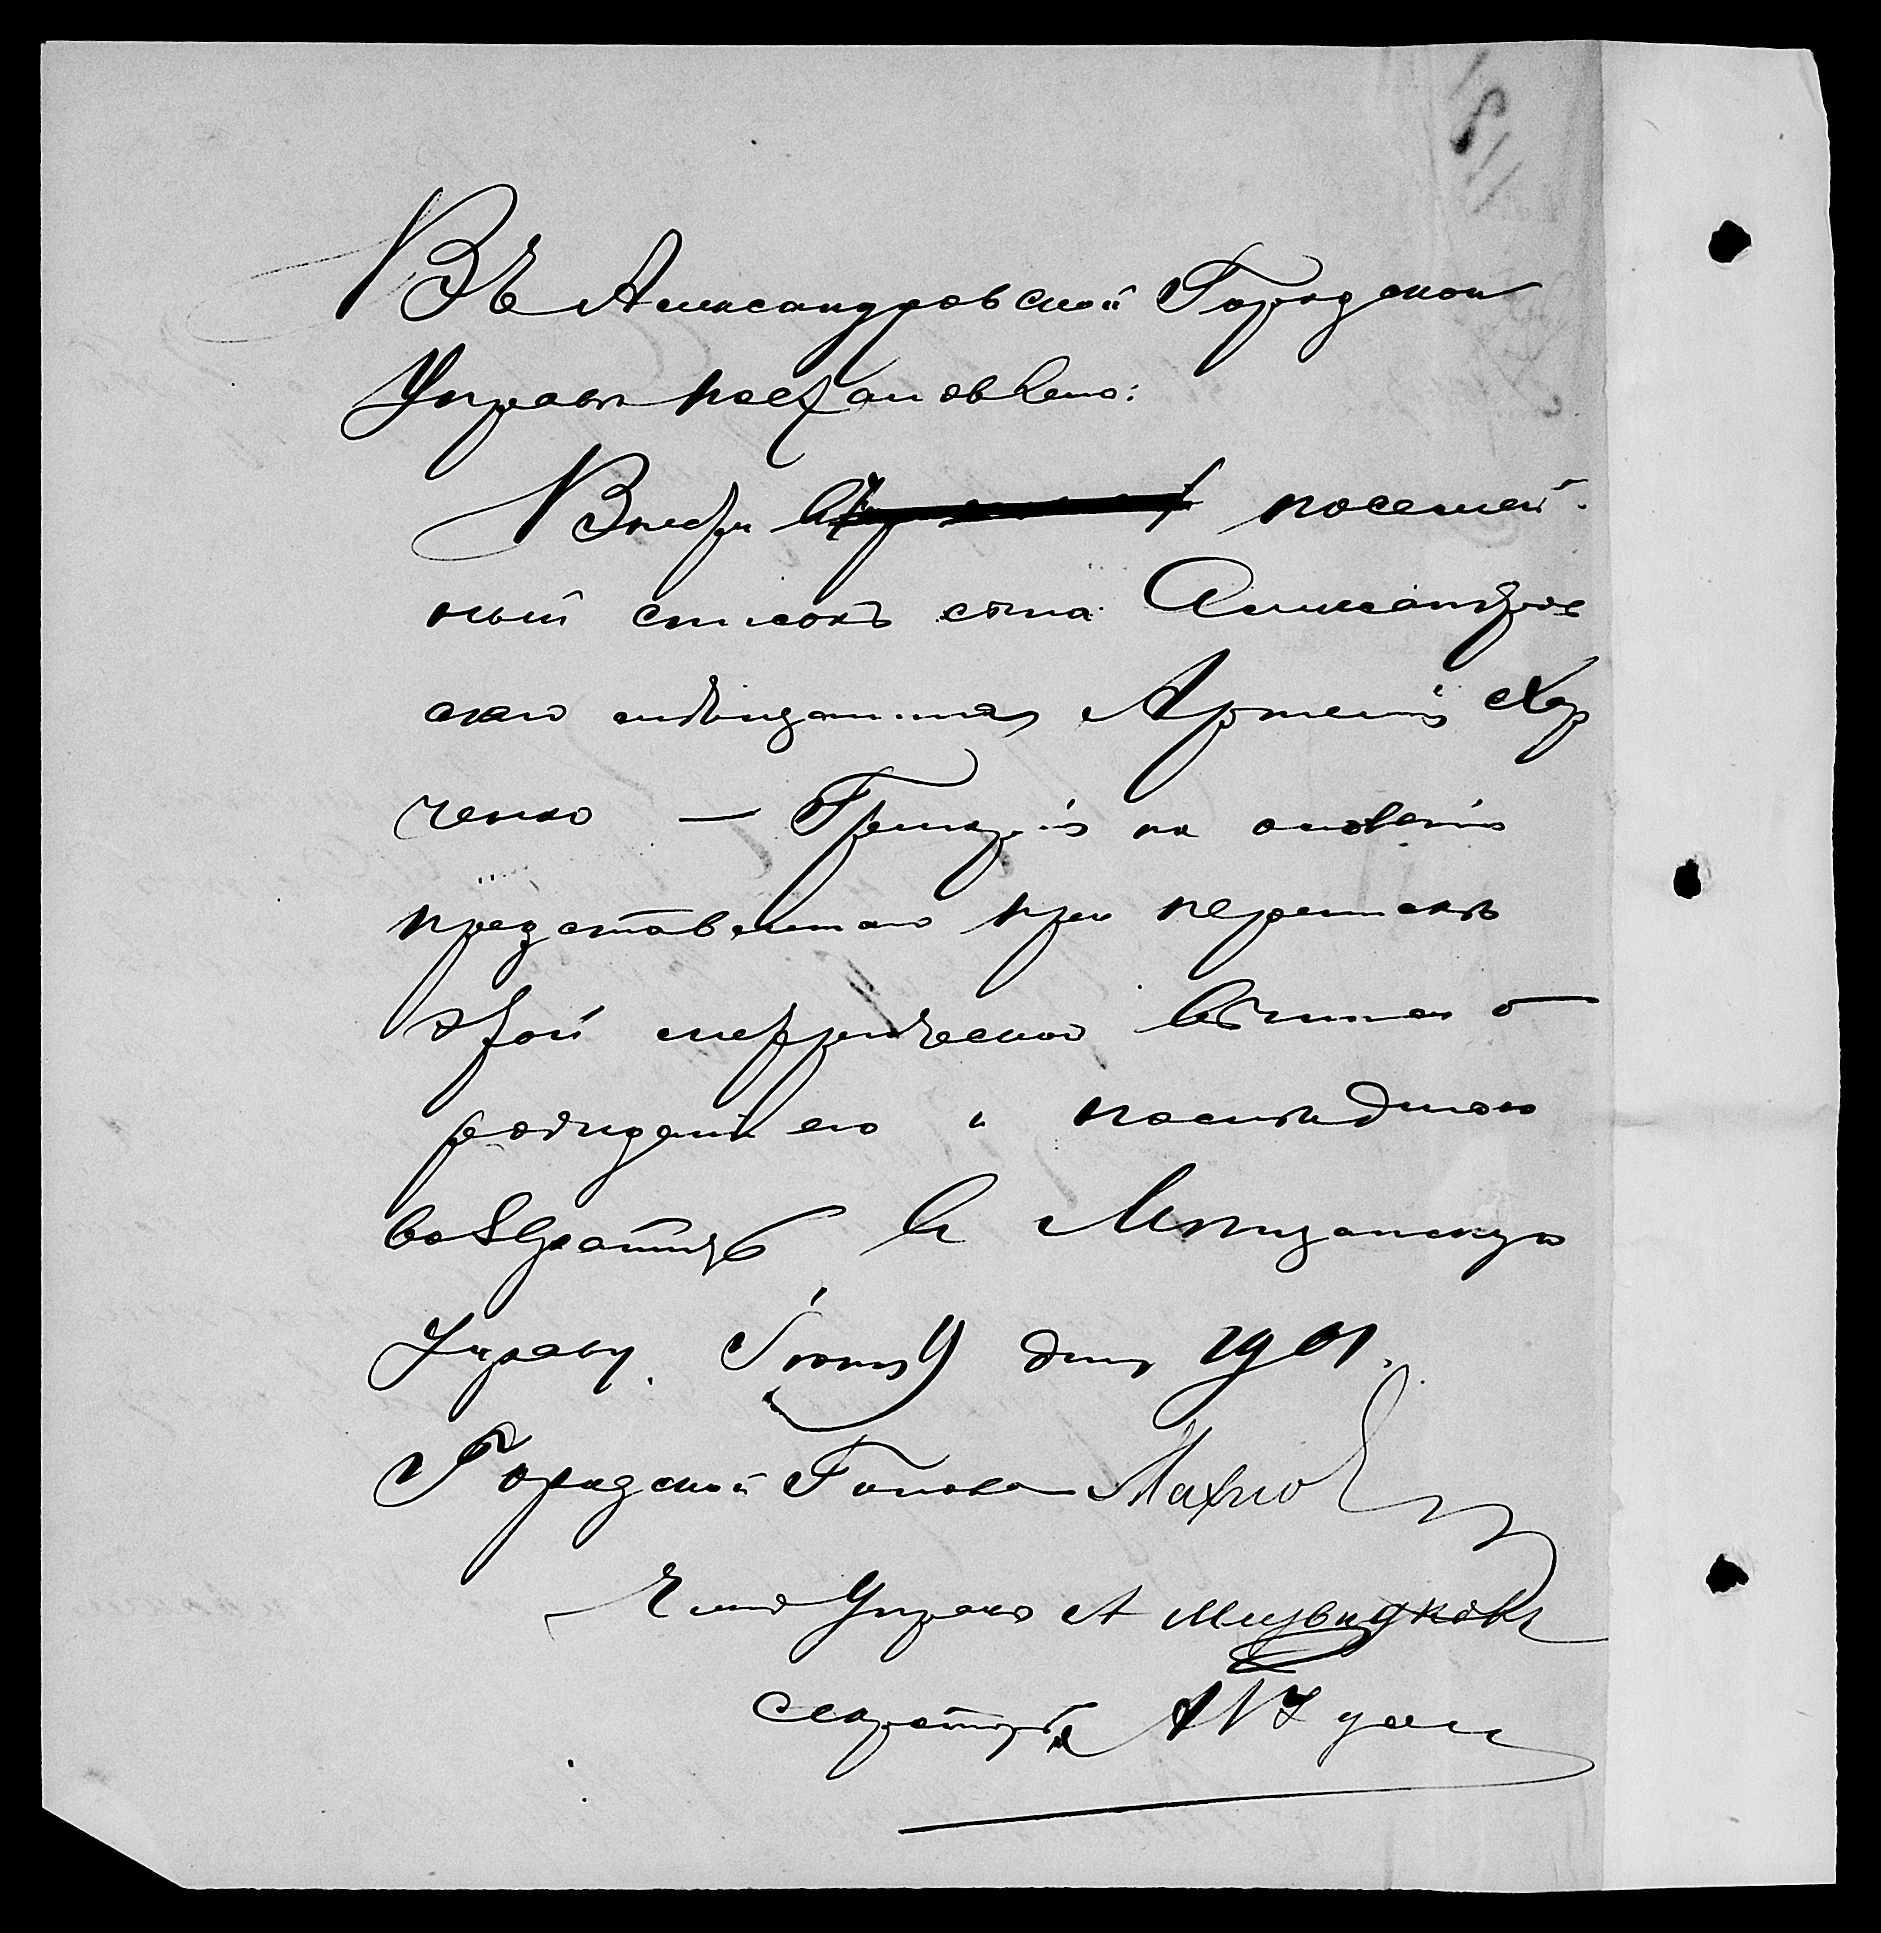 Въ Александровской Городской
Управѣ постановлено:
Внести въ посемей-
ный списокъ сына Александров
скаго мѣщанина Артемія Хар
ченко — Григорія на основаніи
представленной при перепискѣ
этой метрической выписи о
рожденіи его и послѣднюю
возвратить въ Мѣщанскую
Управу. Іюня 9 дня 1901.
Городской Голова Махно
Членъ Управы А
Секретарь